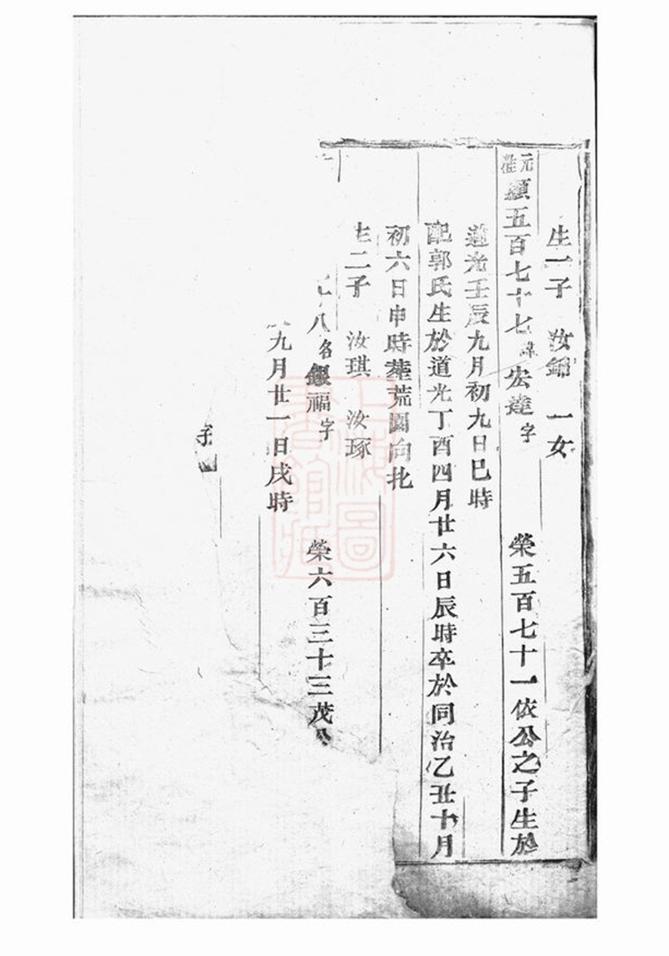 生一子 汝錦 一女
元 顯五百七十七 諱 宏達 字 榮五百七十一依公之子生於
道光壬辰九月初九日巳時
配郭氏生於道光丁酉四月廿六日辰時卒於同治乙丑十月
初六日申時葬荒園向北
生二子 汝琪 汝琢
八 名 銀福 字 榮六百三十三茂公
九月廿一日戌時
子